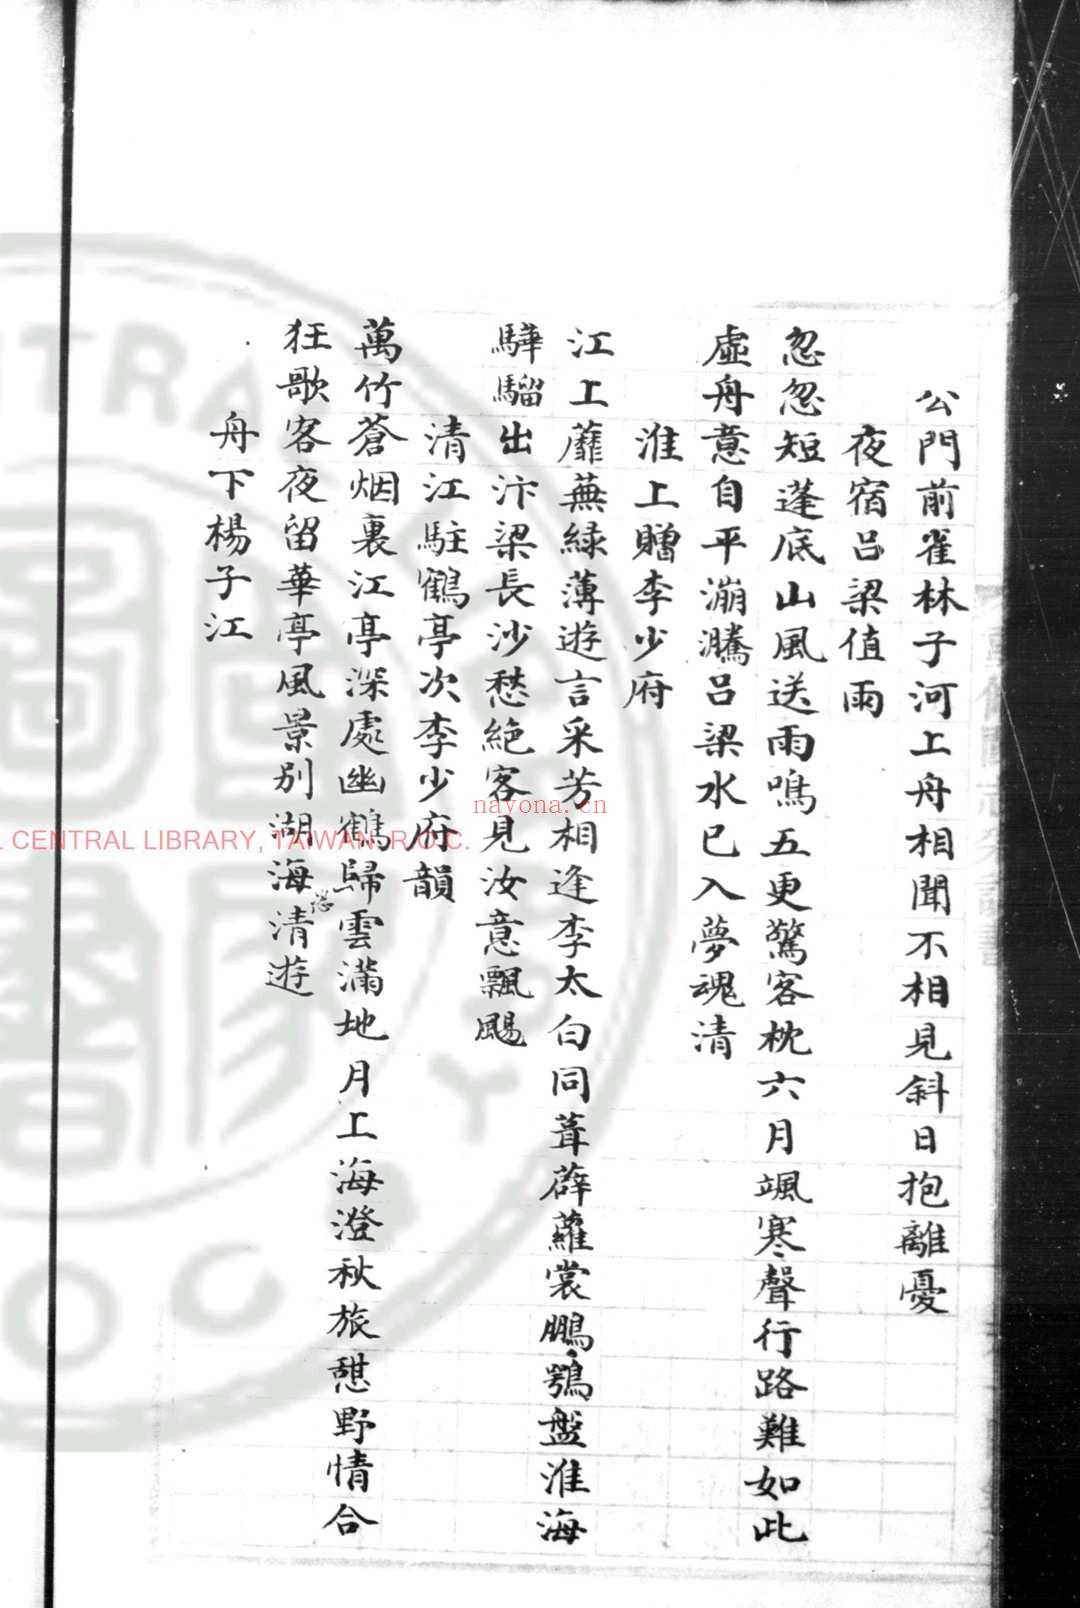 公門前雀林子河上舟相聞不相見斜日抱離憂
夜宿呂梁值雨
忽忽短蓬底山風送雨鳴五更驚客枕六月颯寒聲行路難如此
虛舟意自平漰騰呂梁水已入夢魂清
淮上贈李少府
江上蘼蕪綠薄遊言采芳相逢李太白同葺薜蘿裳鵬鶚盤淮海
驊騮出汴梁長沙愁絕客見汝意飄颺
清江駐鶴亭次李少府韻
萬竹蒼烟裏江亭深處幽鶴歸雲滿地月上海澄秋旅憇野情合
狂歌客夜留華亭風景别湖海清遊
舟下楊子江
nayona.cn
CENTRAL LIBRARY, TAIWAN, R.O.C.